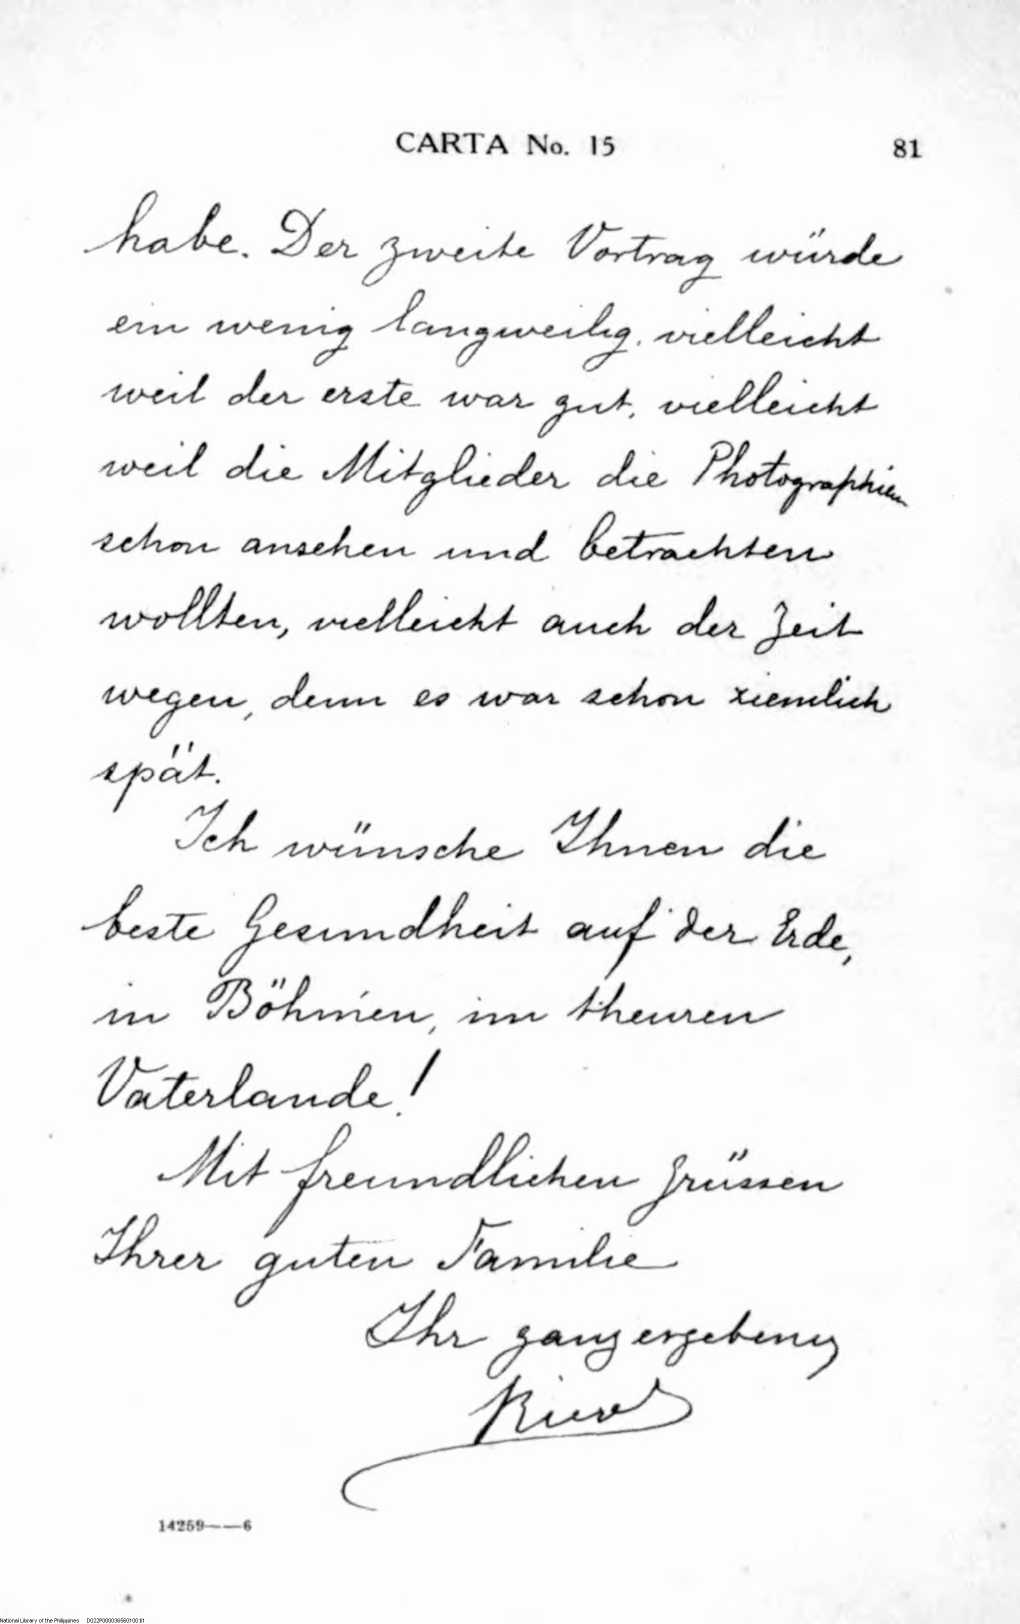 CARTA No. 15 81
habe. Der zweite Vortrag würde
ein wenig langweilig, vielleicht
weil der erste war gut, vielleicht
weil die Mitglieder die Photographien
schon ansehen und betrachten
wollten, vielleicht auch der Zeit
wegen, denn es war schon ziemlich
spät.
Ich wünsche Ihnen die
beste Gesundheit auf der Erde,
in Böhmen, im theuren
Vaterlande!
Mit freundlichen Grüssen
Ihrer guten Familie
Ihr ganz ergebener
Rizal
14259——6
National Library of the Philippines